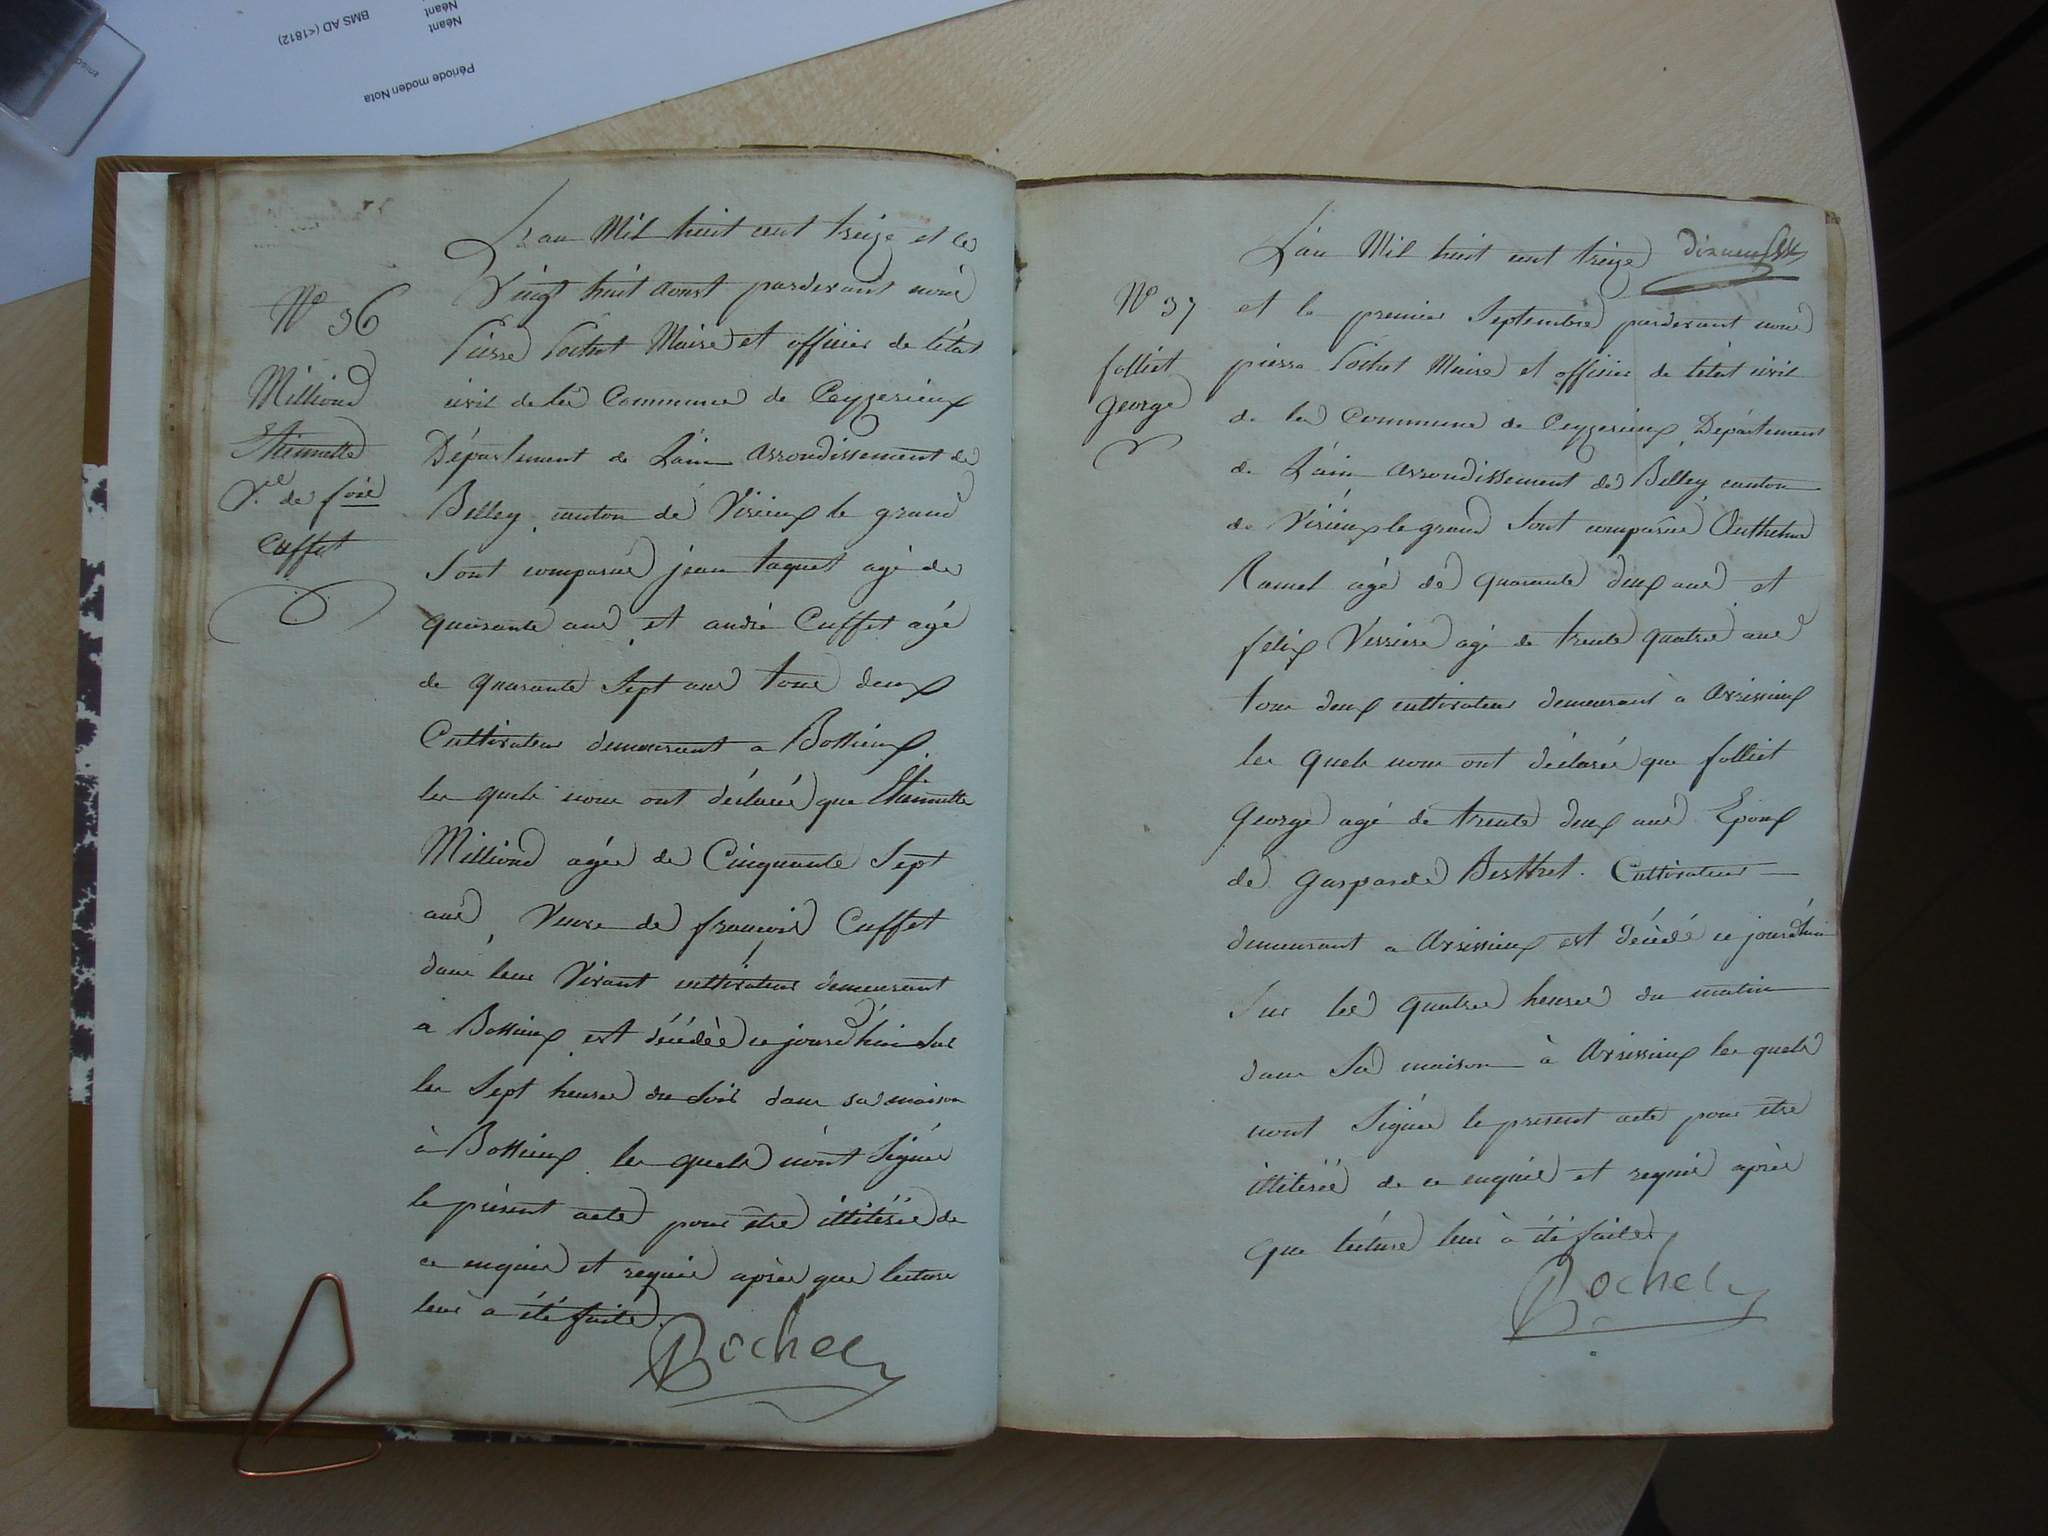 Néant
Néant
BMS AD (<1812)
Période moden Nota
N° 36
Milliond
Etiennette
V.e de foic
Cuffet
L'an Mil huit cent treize et le
Vingt huit aoust pardevant nous
Pierre Pochet Maire et officier de l'état
civil de la Commune de Ceyzerieux
Département de L'ain arrondissement de
Belley, canton de Virieux le grand
Sont comparus jean taquet agé de
quarante ans, et andré Cuffet agé
de quarante Sept ans tous deux
Cultivateur demeurent a Bossieux
les quels nous ont déclarés que Etiennette
Milliond agée de Cinquante Sept
ans, Veuve de françois Cuffet
dans leur Vivant cultivateur demeurant
a Bossieux est décédée ce jourd'hui Sur
les Sept heures du Soir dans sa maison
à Bossieux les quels n'ont Signés
le présent acte pour être illitérés de
ce enquis et requis après que lecture
leur a été faite.
Pochet
dixneuf
N° 37
folliet
george
L'an Mil huit cent treize
et le premier Septembre pardevant nous
pierre Pochet Maire et officier de l'état civil
de la Commune de Ceyzerieux, Département
de L'ain arrondissement de Belley, canton
de Virieux le grand Sont comparus Anthelme
Ramel agé de quarante deux ans, et
félix Verriere agé de trente quatre ans
tous deux cultivateur demeurant à Avrissieux
les quels nous ont déclarés que folliet
george agé de trente deux ans Epoux
de gasparde Berthet. Cultivateur
demeurant a Avrissieux est décédé ce jourd'hui
Sur les quatres heures du matin
dans Sa maison à Avrissieux les quels
nont Signés le present acte pour être
illitérés de ce enquis et requis après
que lecture leur à été faite
Pochet